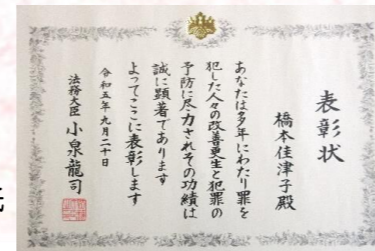 表彰状
橋本佳津子殿
あなたは多年にわたり罪を
犯した人々の改善更生と犯罪の
予防に尽力されその功績は
誠に顕著であります
よってここに表彰します
令和五年九月二十日
法務大臣 小泉龍司